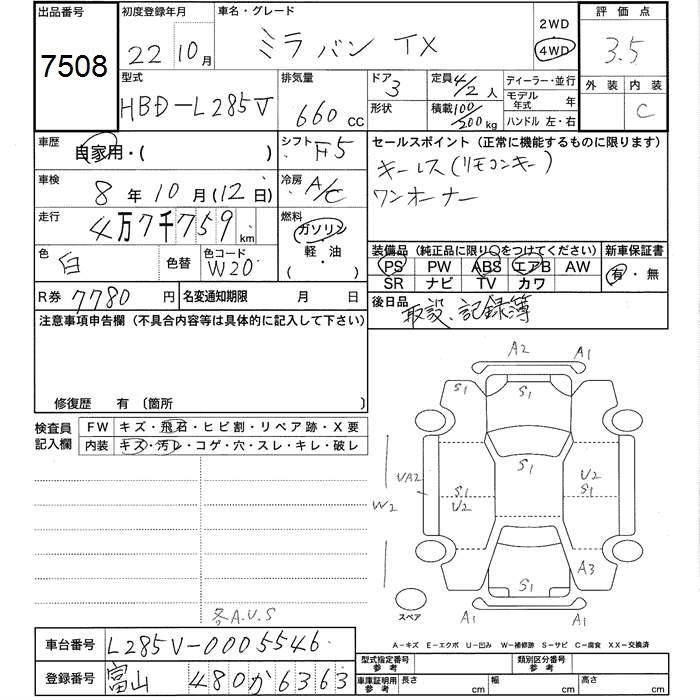 出品番号
7508
初度登録年月
22年10月
車名・グレード
ミラバン TX
2WD
4WD
評価点
3.5
外装 内装
C
型式
HBD-L285V
排気量
660 cc
ドア
3
形状
定員 4/2 人
積載 100/200 kg
ディーラー・並行
モデル年式 年
ハンドル 左・右
車歴
自家用・( )
シフト
F5
車検
8年10月(12日)
冷房
A/C
走行
4万7千759 km
燃料
ガソリン
軽・油
( )
色
白
色替
色コード
W20
R券 7780円
名変通知期限 月 日
セールスポイント(正常に機能するものに限ります)
キーレス(リモコンキー)
ワンオーナー
装備品(純正品に限り○をつけてください)
PS PW ABS エアB AW
SR ナビ TV カワ
新車保証書
有・無
後日品
取説、記録簿
注意事項申告欄(不具合内容等は具体的に記入して下さい)
修復歴 有 〔箇所 〕
検査員記入欄
FW キズ・飛石・ヒビ割・リペア跡・X要
内装 キズ・汚レ・コゲ・穴・スレ・キレ・破レ
各A.U.S
A2 A1
S1 S1
S1
UA2 S1 U2
U2 S1
W2
A3
S1
A1 A1
スペア
A-キズ E-エクボ U-凹み W-補修跡 S-サビ C-腐食 XX-交換済
車台番号 L285V-0005546
登録番号 富山 480か6363
型式指定番号 参考
類別区分番号 参考
車庫証明用 参考
長さ cm 幅 cm 高さ cm